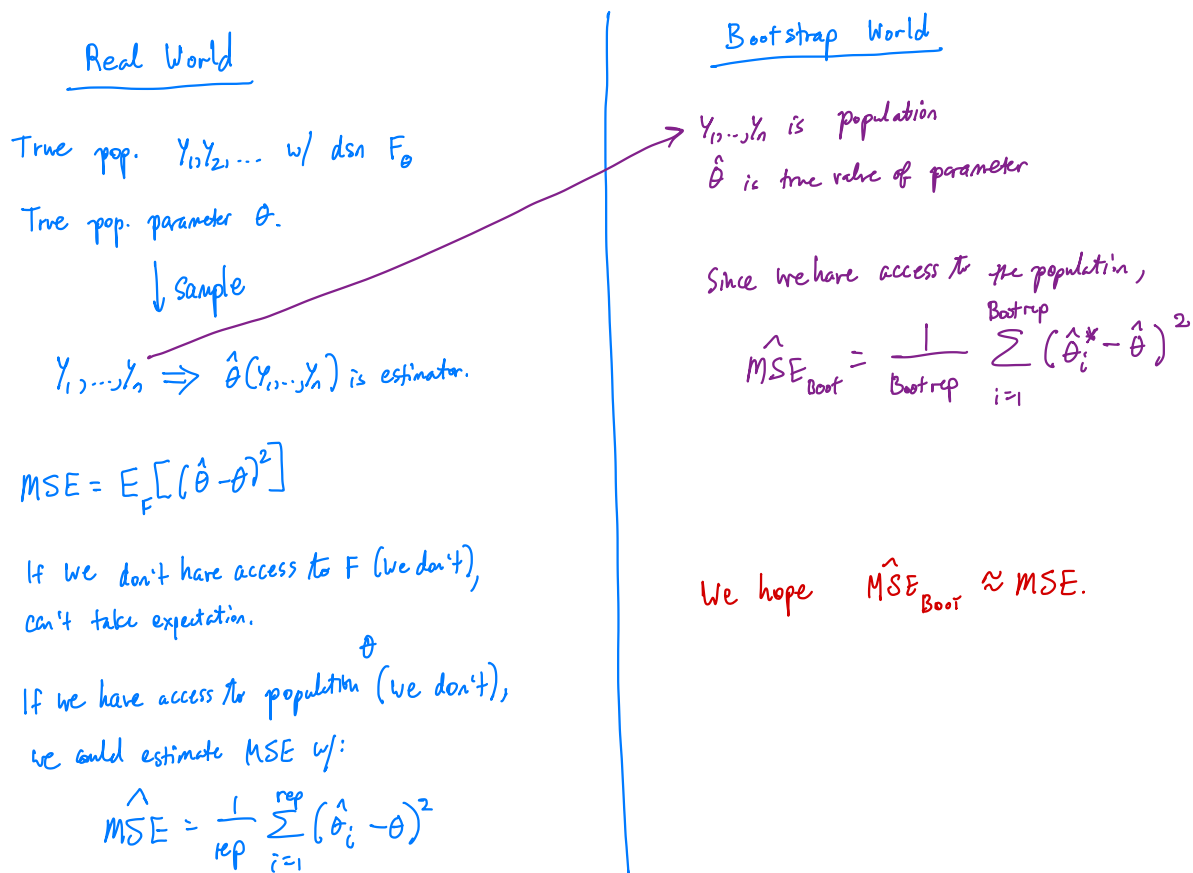 Real World
True pop. Y₁,Y₂,... w/ dsn F_θ
True pop. parameter θ.
↓ sample
Y₁,...,Yₙ ⇒ θ̂(Y₁,...,Yₙ) is estimator.
MSE = E_F[(θ̂-θ)²]
If we don't have access to F (we don't),
can't take expectation.
θ
If we have access to population (we don't),
we could estimate MSE w/:
M̂SE = 1/rep ∑_{i=1}^{rep} (θ̂ᵢ - θ)²
Bootstrap World
Y₁,...,Yₙ is population
θ̂ is true value of parameter
Since we have access to the population,
M̂SE_Boot = 1/Bootrep ∑_{i=1}^{Bootrep} (θ̂ᵢ* - θ̂)²
We hope M̂SE_Boot ≈ MSE.